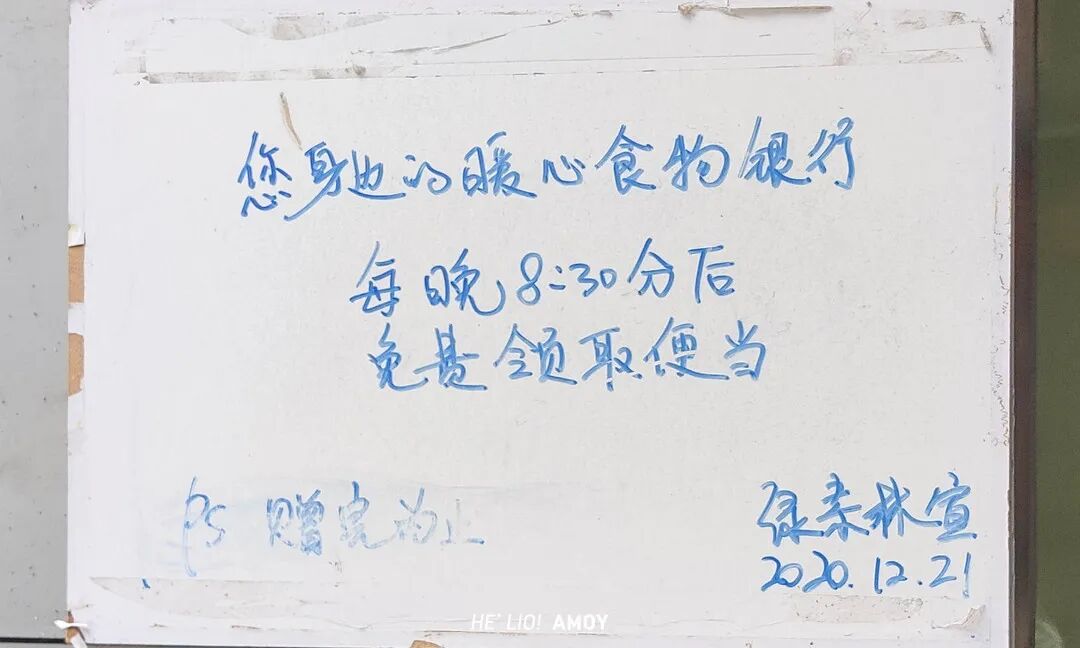 您身边的暖心食物银行
每晚8:30分后
免费领取便当
PS 赠完为止
绿素林宣
2020.12.21
HE'LIO! AMOY